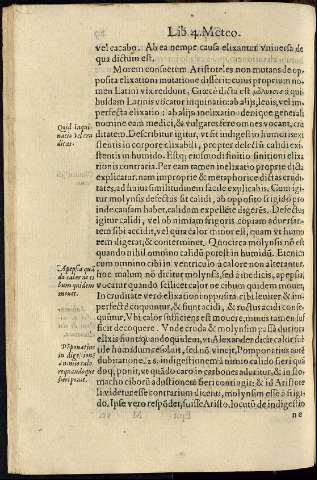 Lib 4. Meteo.
vel cacabo. Ab ea nempe causa elixantur vniuersa de
qua dictum est.
Morem consuetum Aristoteles non mutans de op
posita elixationi mutatione disserit: cuius proprium no-
men Latini vix reddunt. Græcè dicta est à qui
busdam Latinis vocatur inquinatio: ab alijs, leuis, vel im-
perfecta elixatio: ab alijs inelixatio: denique generali
nomine eam medici, & vulgares ferè omnes vocant, cru
ditatem. Describitur igitur, vt sit indigestio humoris exi
stentis in corpore elixabili, propter defectũ calidi exi
stentis in humido. Estq; eiusmodi finitio finitioni elixa
tionis contraria. Per eam tamen inelixatio propriè dicta
explicatur, nam impropriè & metaphoricè dictas crudi-
tates, ad suã vt similitudinem facile explicabis. Cum igi
tur molynsis defectus sit calidi, ab opposito frigido pro
inde causam habet, calidum expellēte digerēs. Defectus
igitur calidi, vel ob nimiam frigoris copiam aduersan-
tem sibi accidit, vel quia calor minor est, quam vt humo
rem digerat, & conterminet. Quocirca molynsis nō est
quando nihil omnino calidũ potest in humidũ. Etenim
cum omnino cibi in ventriculo à calore non alterantur,
hoc malum nō dicitur molynsis, sed à medicis, apepsia,
vocatur quando scilicet calor ne cibum quidem mouit.
In cruditate verò elixationi opposita, cibi leuiter & im-
perfectè coquuntur, & fiunt acidi, & ructus acidi conse-
quũtur, Vbi calor sufficiens est mouere, minus tamen suf
ficit decoquere. Vnde cruda & molynsim passa duriora
elixis fiunt quandoquidem, vt Alexander dicit calor sub
tile humidum resoluit, sed nō vincit, Pomponatius mota
dubitatione, às indigestionem à nimio calido fieri quã
doq; ponit, vt quãdo caro in carbonem aduritur, & in sto-
macho ciborũ adustionem fieri contingit: & id Aristote
li videtur esse contrarium dicenti, molynsim esse à frigi-
do. Ipse verò respōdet, fuisse Aristo. locutũ de indigestio
ne
Quid inqui
natio vel cru
ditas.
Apepsia quã
do calor ne ci
bum quidem
mouit.
Põponatius
in digestionẽ
à nimio calo
re quandoque
fieri putat.